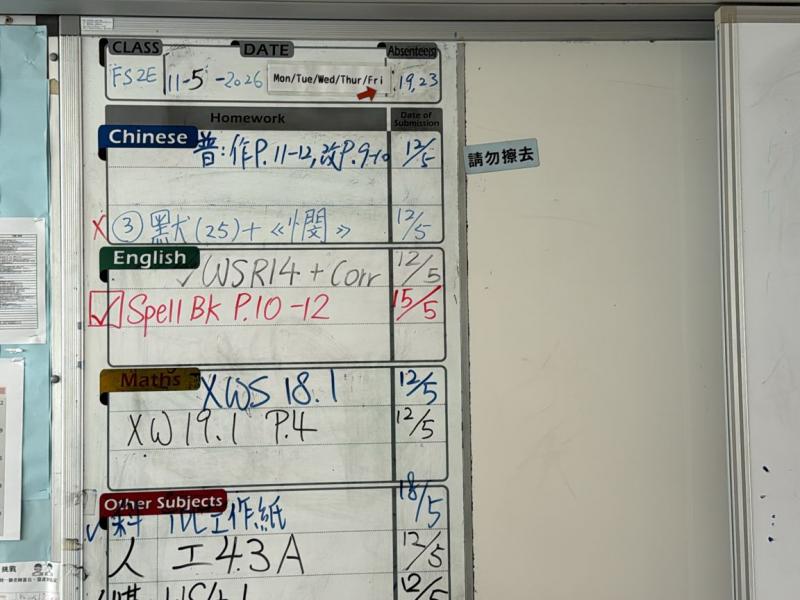 CLASS DATE Absentee(s)
FS2E 11-5-2026 Mon/Tue/Wed/Thur/Fri 19,23
Homework Date of Submission
Chinese
普:作P.11-12,改P.9-10 12/5
請勿擦去
X ③ 默(25)+《憫》 12/5
English
✓WSR14 + Corr 12/5
✓ Spell Bk P.10-12 15/5
Maths
XWS 18.1 12/5
XW 19.1 P.4 12/5
Other Subjects
工作紙 18/5
人 工4.3A 12/5
挑戰